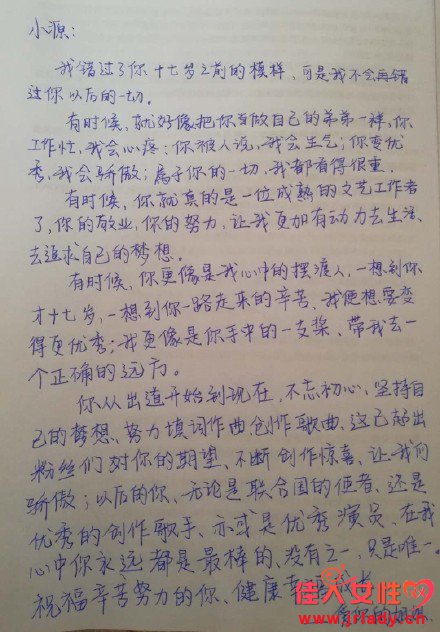 小源:
我错过了你十七岁之前的模样,可是我不会再错
过你以后的一切。
有时候,就好像把你当做自己的弟弟一样,你
工作忙,我会心疼;你被人说,我会生气;你变优
秀,我会骄傲;属于你的一切,我都看得很重.
有时候,你就真的是一位成熟的文艺工作者
了,你的敬业,你的努力,让我更加有动力去生活、
去追求自己的梦想.
有时候,你更像是我心中的摆渡人,一想到你
才十七岁,一想到你一路走来的辛苦、我便想要变
得更优秀;我更像是你手中的一支桨、带我去一
个正确的远方。
你从出道开始到现在,不忘初心、坚持自
己的梦想、努力填词作曲,创作歌曲、这已超出
粉丝们对你的期望、不断创作惊喜、让我们
骄傲;以后的你、无论是联合国的使者、还是
优秀的创作歌手、亦或是优秀演员、在我
心中你永远都是最棒的、没有之一,只是唯一、
祝福辛苦努力的你、健康幸
爱你的姐姐
佳人女性网
www.jrlady.cn